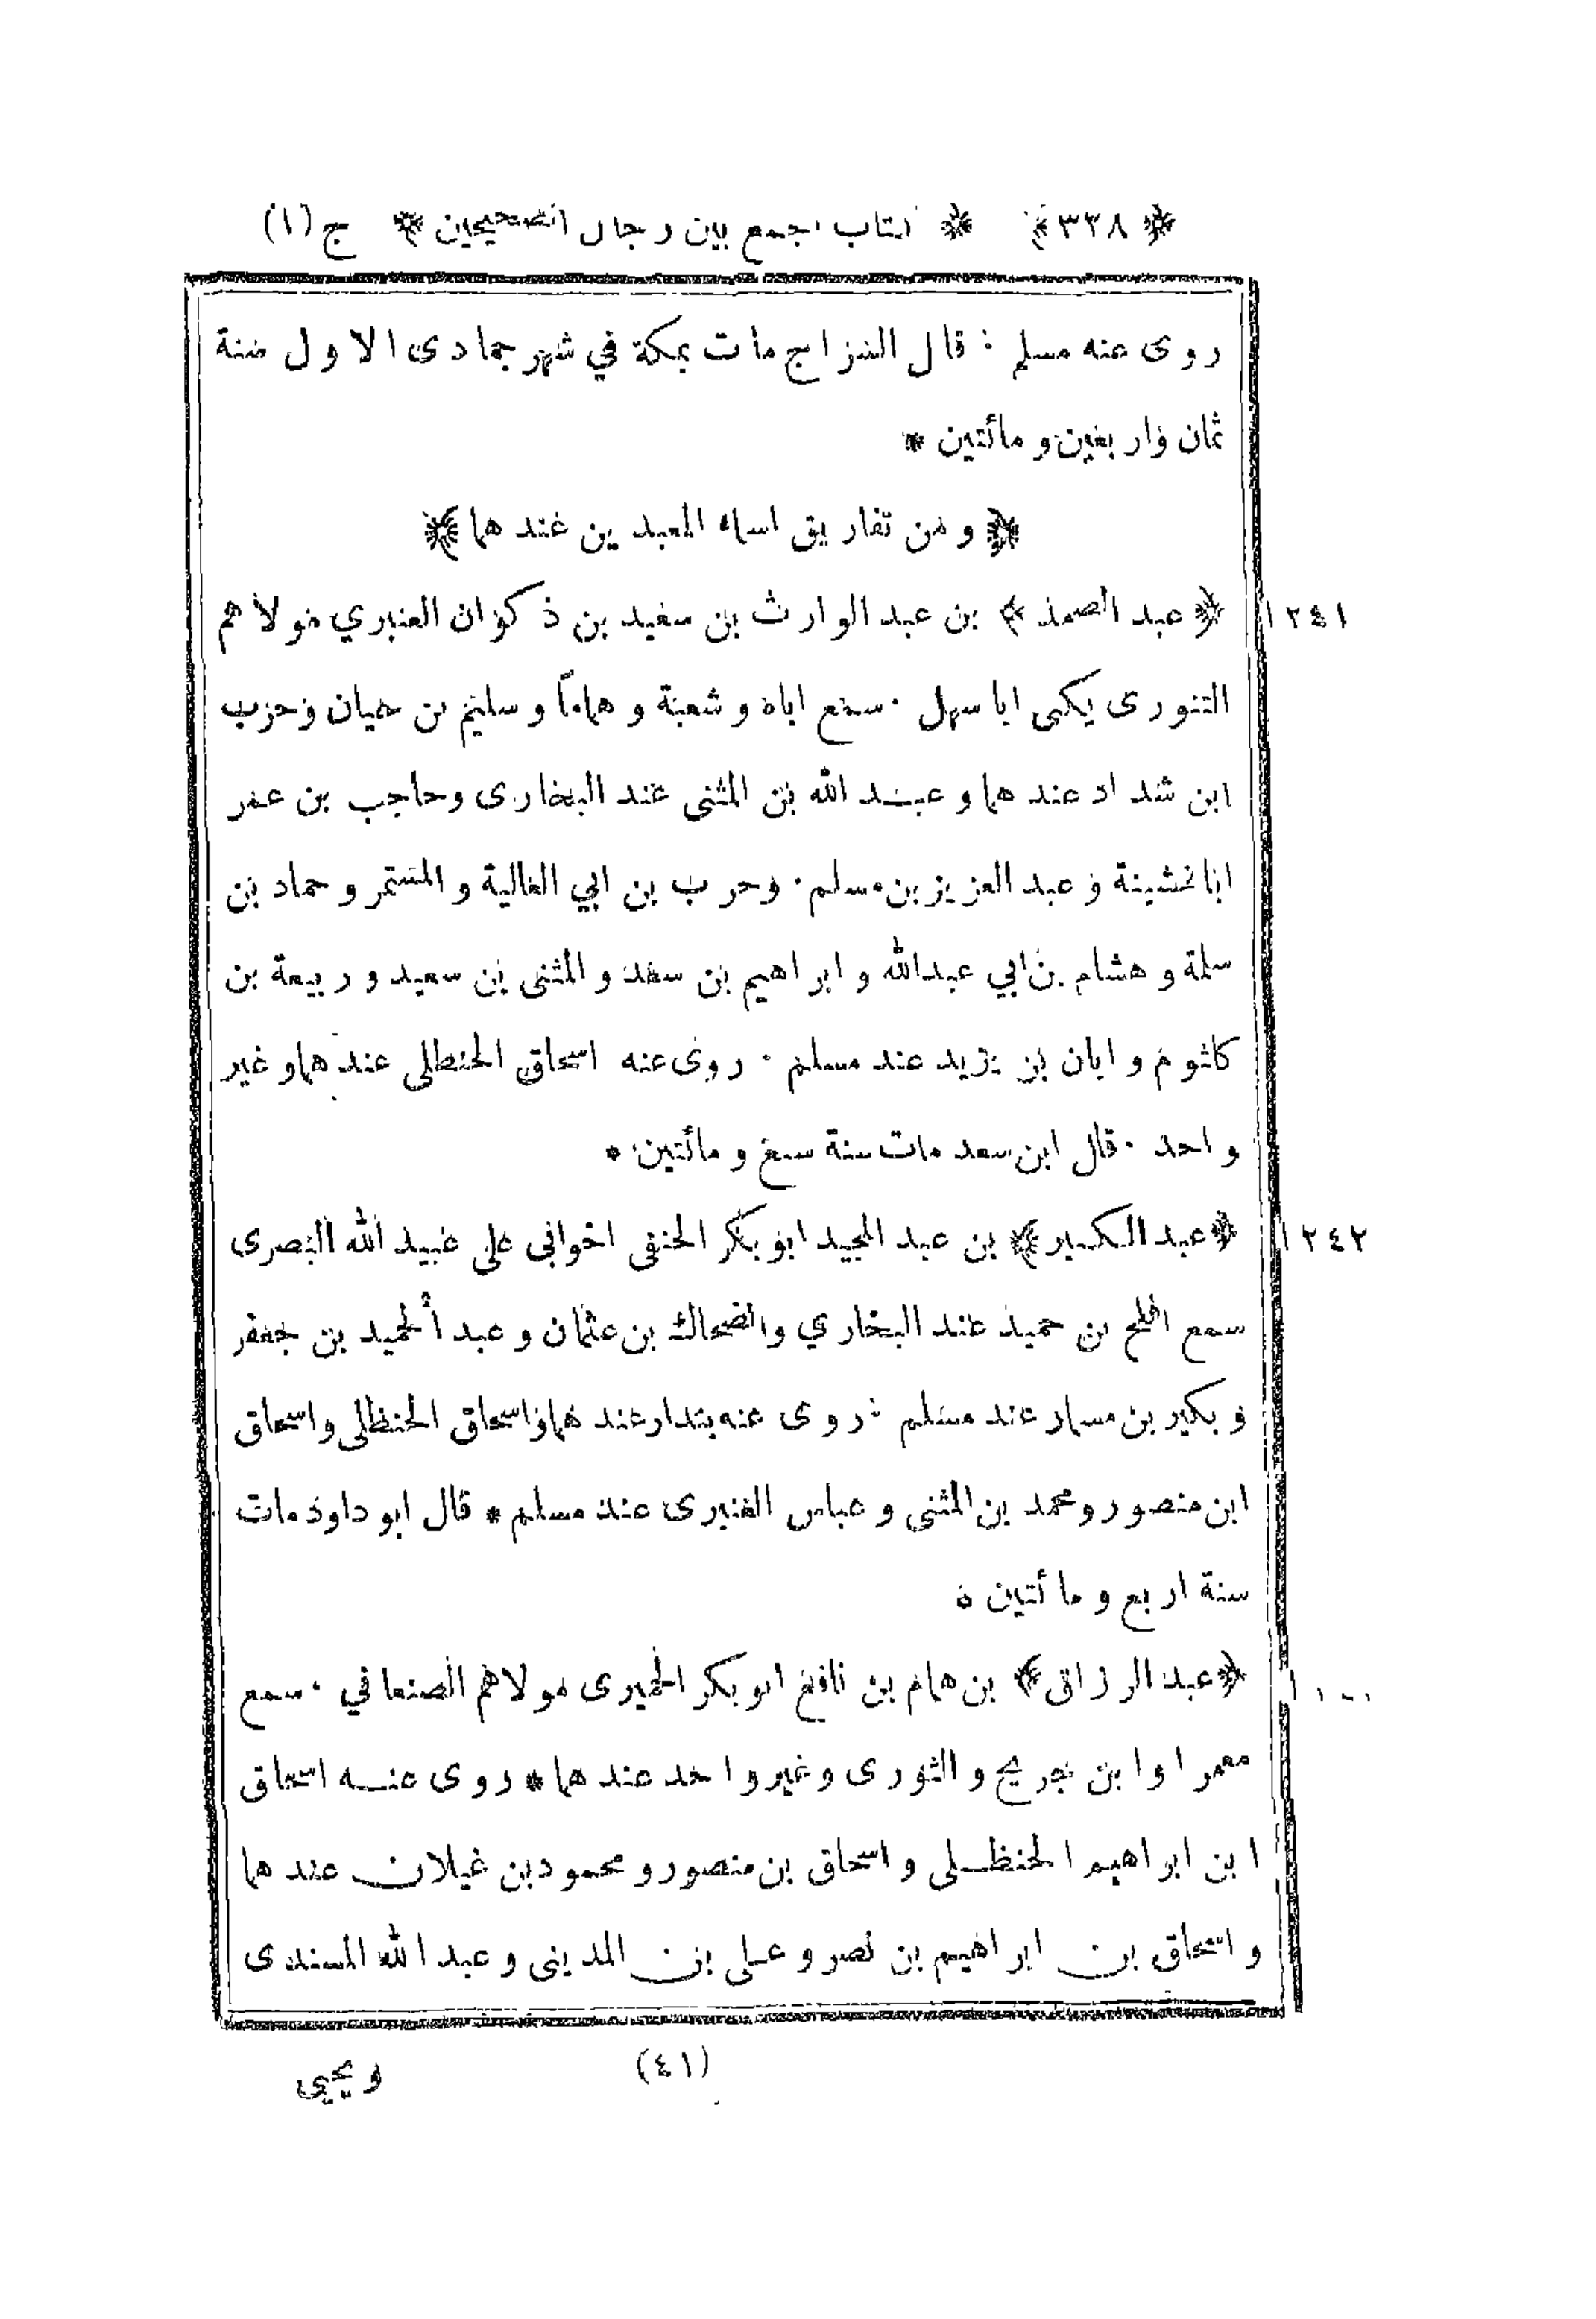 ﴿٣٢٨﴾ ﴿كتاب الجمع بين رجال الصحيحين﴾ ج (١)
روى عنه مسلم : قال السراج مات بمكة في شهر جمادى الاول سنة
ثمان واربعين و مائتين *
﴿و من تفاريق اسماء المعبدين عندهما﴾
١٢٤١ ﴿عبد الصمد﴾ بن عبد الوارث بن سعيد بن ذكوان العنبري مولاهم
التنورى يكنى ابا سهل ٠ سمع اباه و شعبة و هماماً و سليم بن حيان وحرب
ابن شداد عندهما و عبد الله بن المثنى عند البخارى وحاجب بن عمر
اباخشينة و عبد العزيز بن مسلم ٠ وحرب بن ابي العالية و المستمر و حماد بن
سلمة و هشام بن ابي عبدالله و ابراهيم بن سعد و المثنى بن سعيد و ربيعة بن
كلثوم و ابان بن يزيد عند مسلم ٠ روى عنه اسحاق الحنظلى عندهما و غير
واحد ٠ قال ابن سعد مات سنة سبع و مائتين *
١٢٤٢ ﴿عبد الكبير﴾ بن عبد المجيد ابو بكر الحنفى اخو ابى على عبيد الله البصرى
سمع افلح بن حميد عند البخاري والضحاك بن عثمان و عبد الحميد بن جعفر
و بكير بن مسمار عند مسلم : روى عنه بندار عندهما واسحاق الحنظلى واسحاق
ابن منصور و محمد بن المثنى و عباس العنبرى عند مسلم * قال ابو داود مات
سنة اربع و مائتين *
﴿عبد الرزاق﴾ بن همام بن نافع ابو بكر الحميرى مولاهم الصنعاني ٠ سمع
معمرا وا بن جريج و الثورى و غير واحد عندهما * روى عنه اسحاق
ابن ابراهيم الحنظلى و اسحاق بن منصور و محمود بن غيلان عندهما
و اسحاق بن ابراهيم بن نصر و على بن المدينى و عبد الله المسندى
(٤١) و يحيى